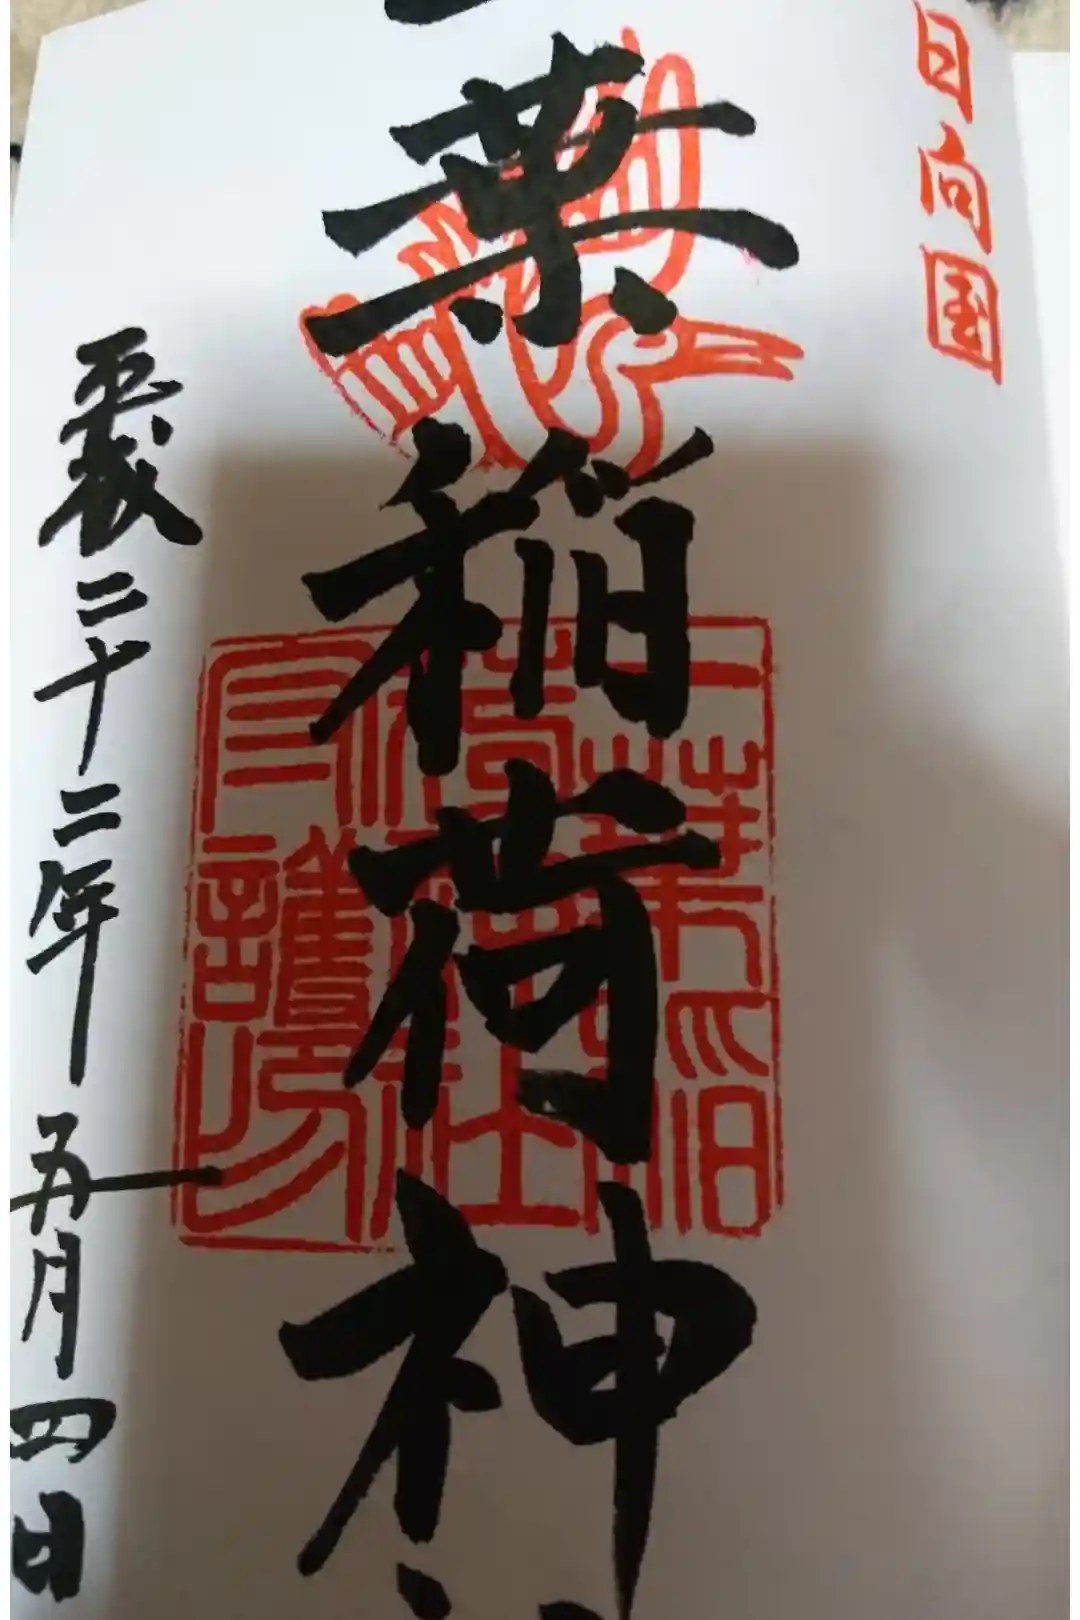 日向国
一葉稲荷神
一葉稲
荷神社
護
平成二十二年五月四日